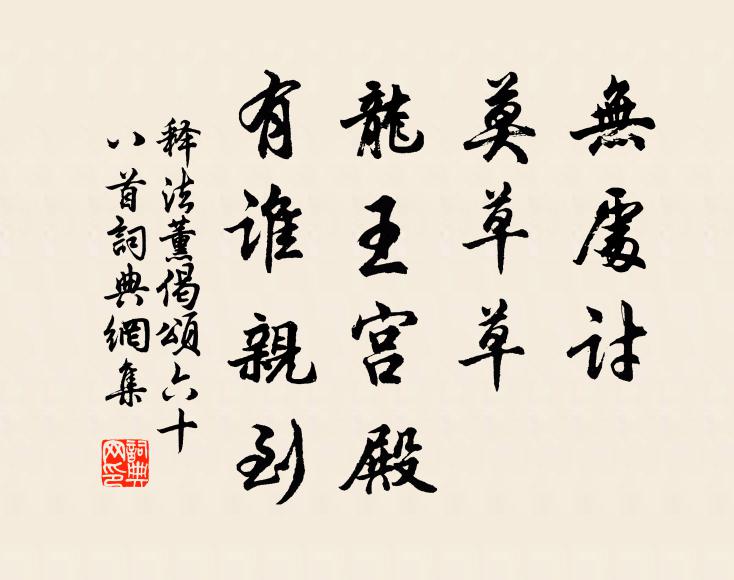 無處討
莫草草
龍王宮殿
有誰親到
释法薰偈頌六十
八首詞典網集
詞典网印